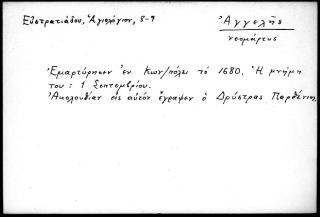 Εὐστρατιάδου, Ἁγιολόγιον, 8-9
Ἀγγελῆς
νεομάρτυς
Ἐμαρτύρησεν ἐν Κων/πόλει τό 1680. Ἡ μνήμη
του: 1 Σεπτεμβρίου.
Ἀκολουθίαν εἰς αὐτόν ἔγραψεν ὁ Δρύστρας Παρθένιος